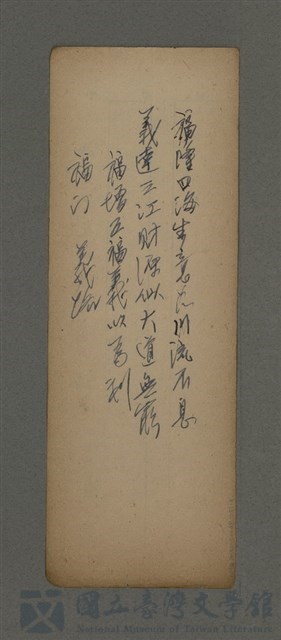 福隆四海生意如川流不息
義達三江財源似大道無窮
福增五福義以為利
福門 義
國立臺灣文學館
National Museum of Taiwan Literature